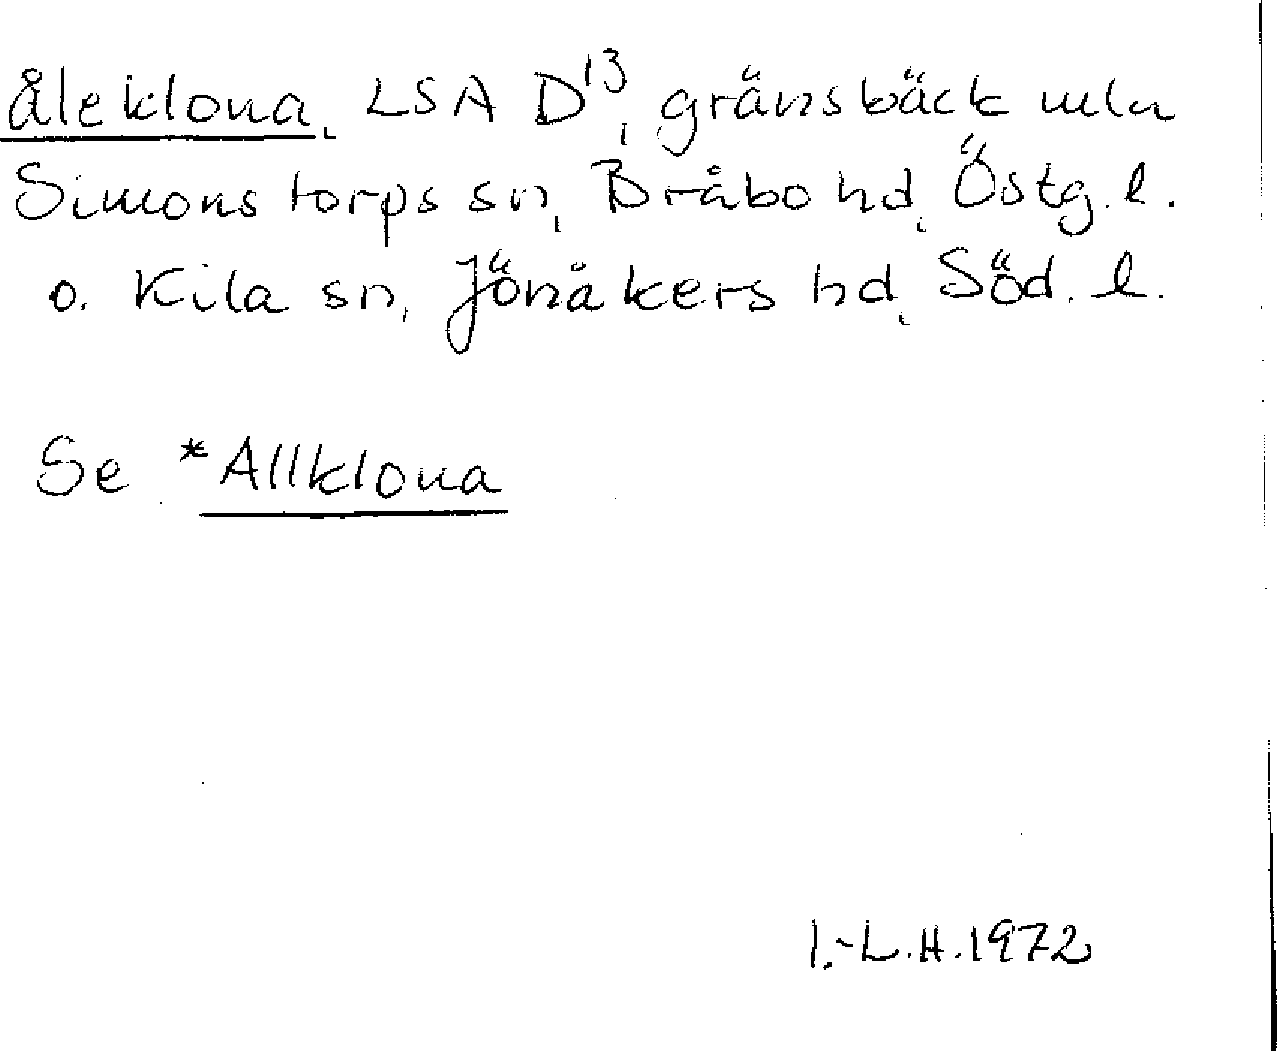 åleklona, LSA D13, gränsbäck mln
Simonstorps sn, Bråbo hd, Östg. l.
o. Kila sn, Jönåkers hd, Söd. l.
Se *Allklona
I.-L.H.1972